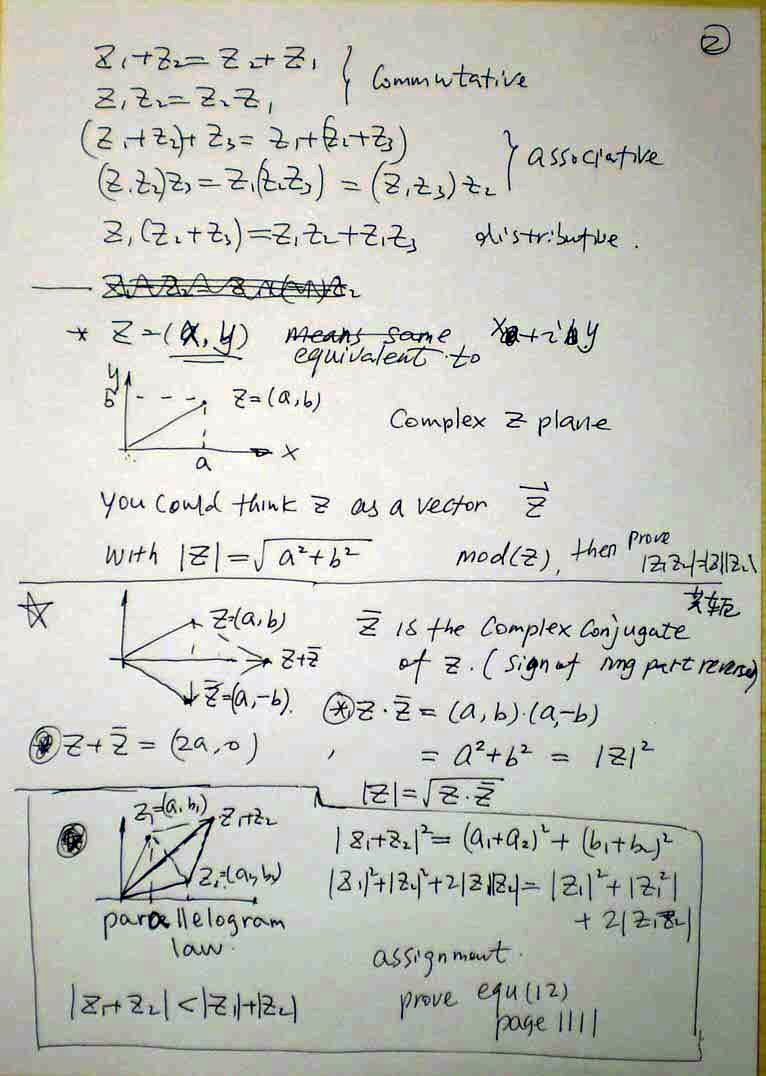 ②
Z₁+Z₂ = Z₂+Z₁
Z₁Z₂ = Z₂Z₁
} Commutative
(Z₁+Z₂)+Z₃ = Z₁+(Z₂+Z₃)
(Z₁Z₂)Z₃ = Z₁(Z₂Z₃) = (Z₁Z₃)Z₂
} associative
Z₁(Z₂+Z₃) = Z₁Z₂+Z₁Z₃ distributive.
* Z=(x, y) means same x+iy
equivalent to
y
b
Z=(a,b)
a
x
Complex Z plane
you could think Z as a vector Z⃗
with |Z| = √(a²+b²) mod(Z), then prove
|Z₁Z₂|=|Z₁||Z₂|
☆
Z=(a,b)
Z+Z̄
Z̄=(a,-b).
Z̄ is the Complex Conjugate
of Z. (sign of img part reverse)
⊛ Z·Z̄ = (a,b)·(a,-b)
= a²+b² = |Z|²
|Z| = √(Z·Z̄)
Z+Z̄ = (2a,0),
Z₁=(a₁,b₁)
Z₁+Z₂
Z₂=(a₂,b₂)
parallelogram
law.
|Z₁+Z₂| < |Z₁|+|Z₂|
|Z₁+Z₂|² = (a₁+a₂)² + (b₁+b₂)²
|Z₁|²+|Z₂|²+2|Z₁||Z₂| = |Z₁|²+|Z₁²|
+ 2|Z₁Z₂|
assignment.
prove equ(12)
page 1111